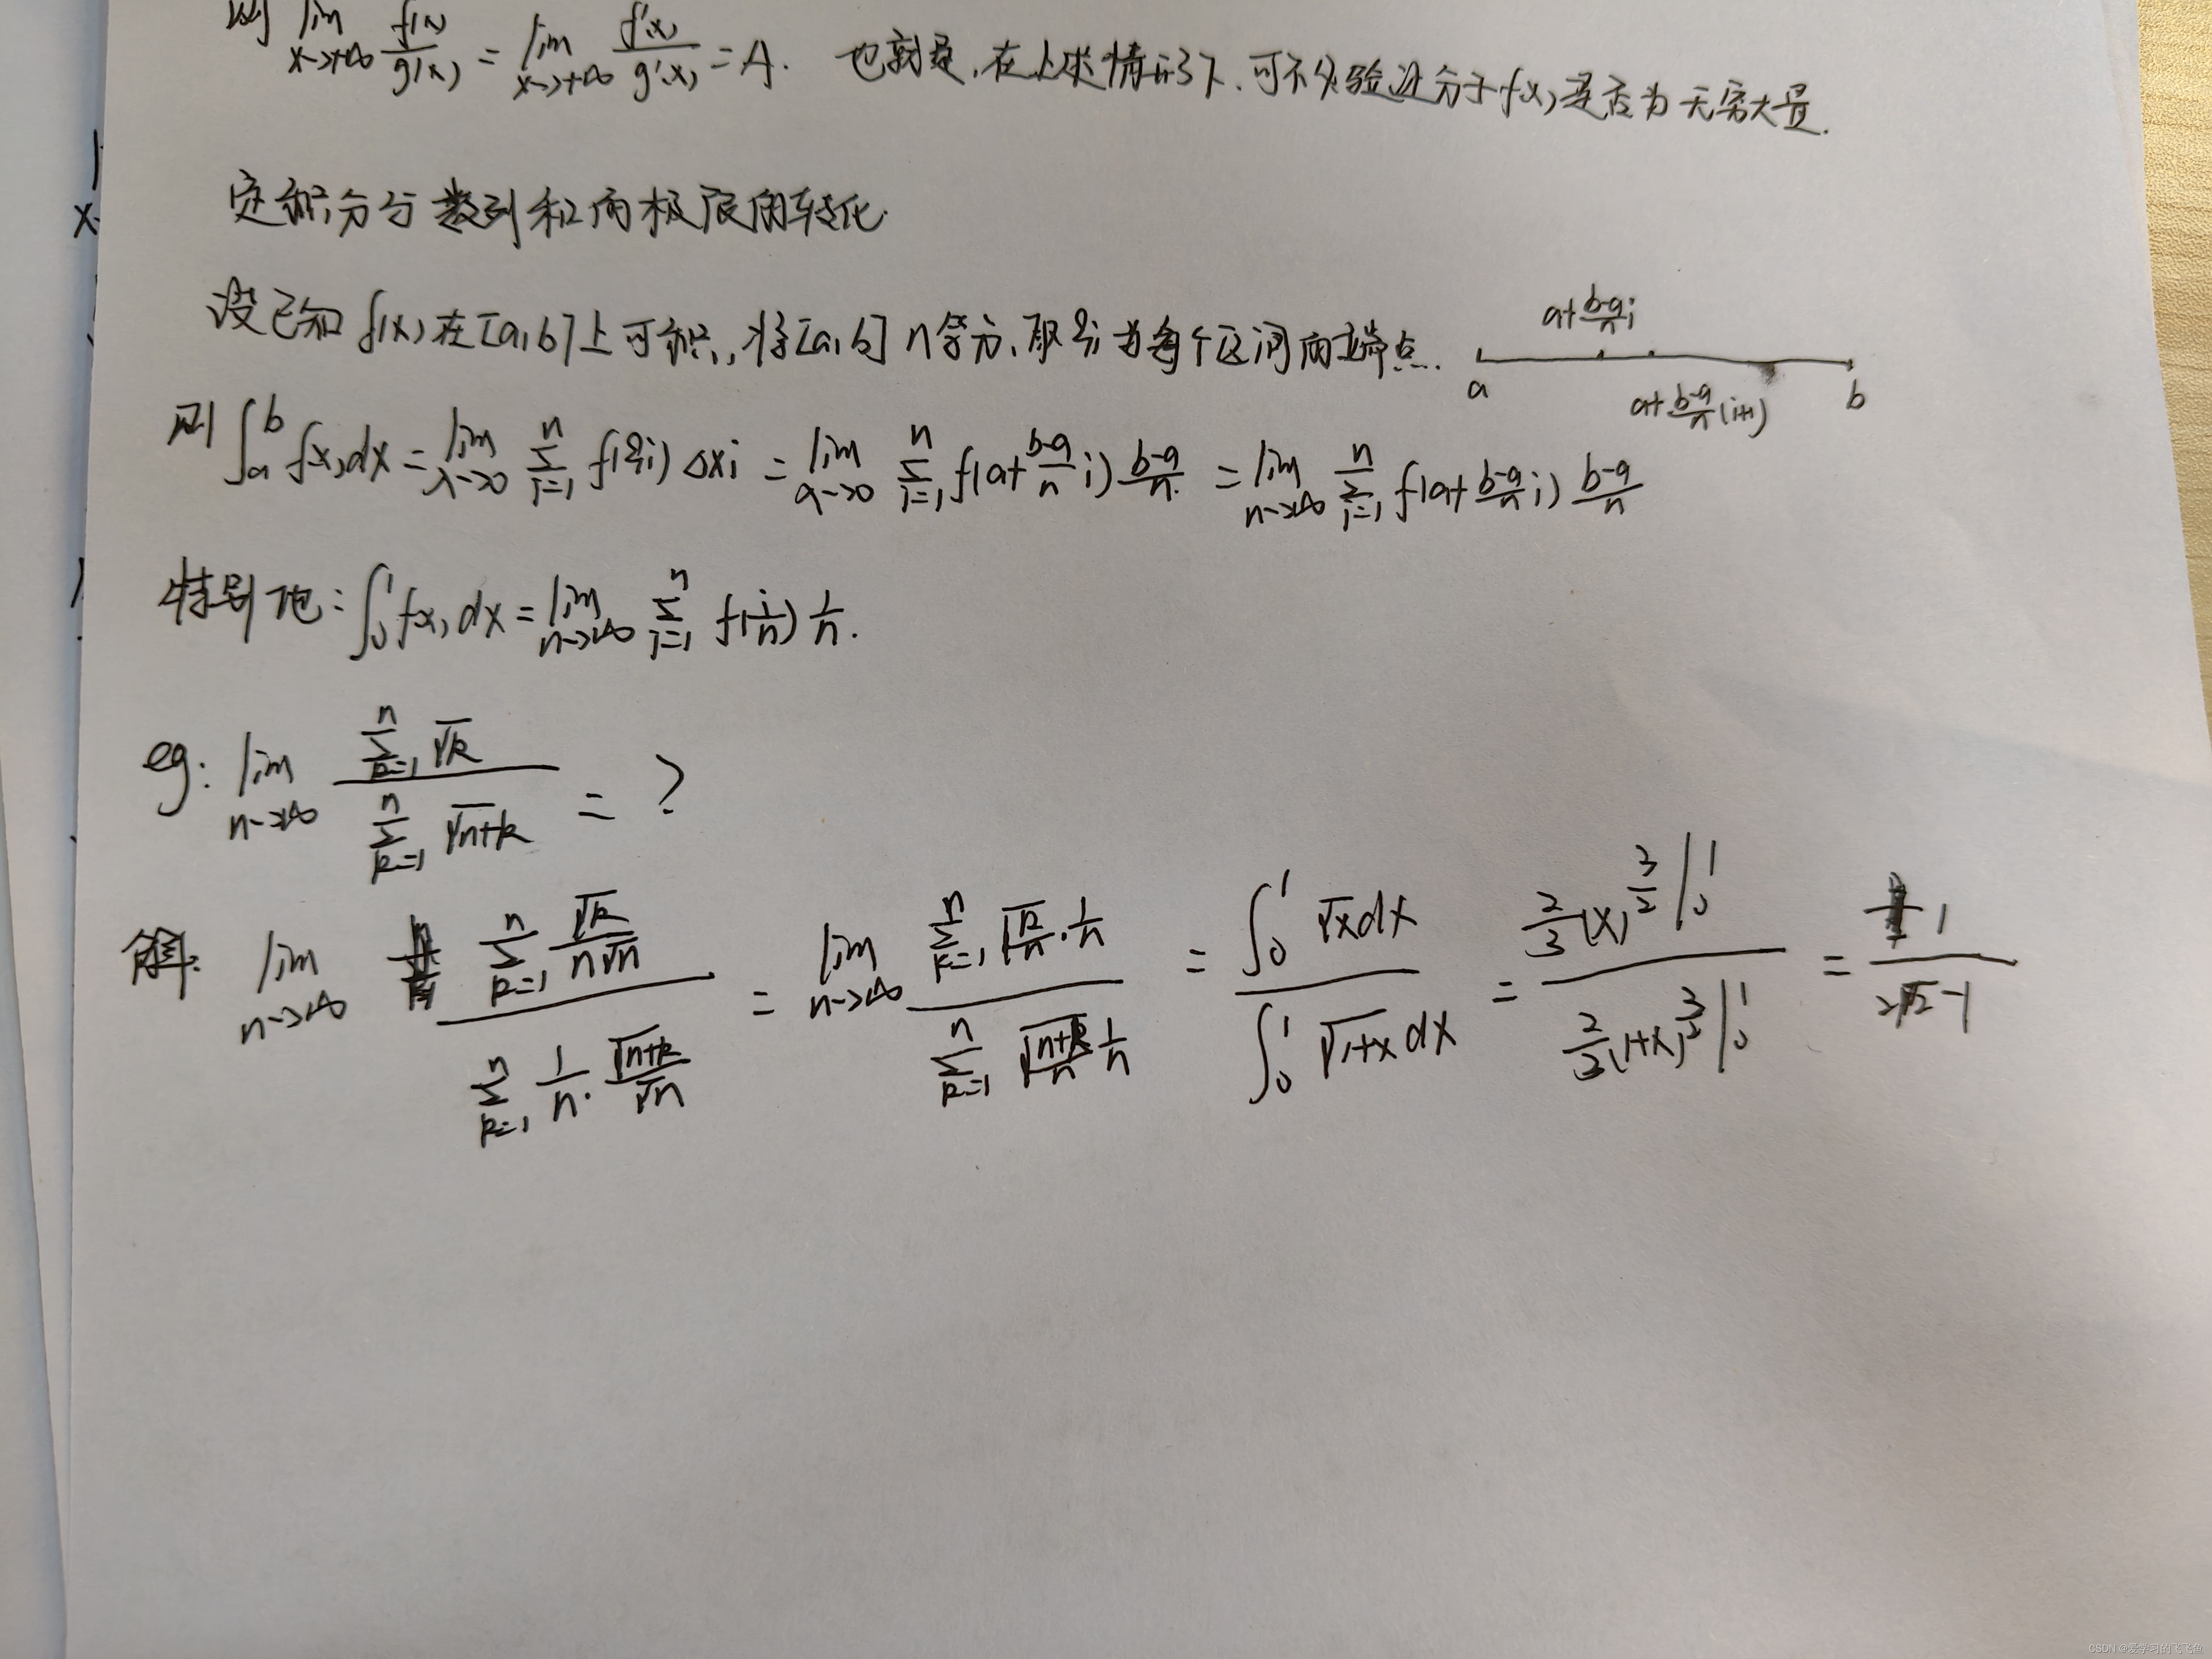 则 lim x→+∞ f(x)/g(x) = lim x→+∞ f'(x)/g'(x) = A. 也就是,在上述情形下,可不必验证分子f(x)是否为无穷大量.
定积分与数列和的极限的转化.
设已知 f(x)在[a,b]上可积,将[a,b] n等分,取ξi为每个区间的端点.
a+(b-a)/n i
a
a+(b-a)/n (i+1)
b
则 ∫_a^b f(x)dx = lim λ→0 Σ_{i=1}^n f(ξi) Δxi = lim λ→0 Σ_{i=1}^n f(a+(b-a)/n i) (b-a)/n = lim n→∞ Σ_{i=1}^n f(a+(b-a)/n i) (b-a)/n
特别地: ∫_0^1 f(x)dx = lim n→∞ Σ_{i=1}^n f(i/n) 1/n.
eg: lim n→∞ (Σ_{k=1}^n √k)/(Σ_{k=1}^n √(n+k)) = ?
解: lim n→∞ (Σ_{k=1}^n √k/(n√n))/(Σ_{k=1}^n 1/n · √(n+k)/√n) = lim n→∞ (Σ_{k=1}^n √(k/n) · 1/n)/(Σ_{k=1}^n √((n+k)/n) 1/n) = (∫_0^1 √x dx)/(∫_0^1 √(1+x) dx) = (2/3 (x)^{3/2} |_0^1)/(2/3 (1+x)^{3/2} |_0^1) = 1/(2√2-1)
CSDN @爱学习的飞飞鱼